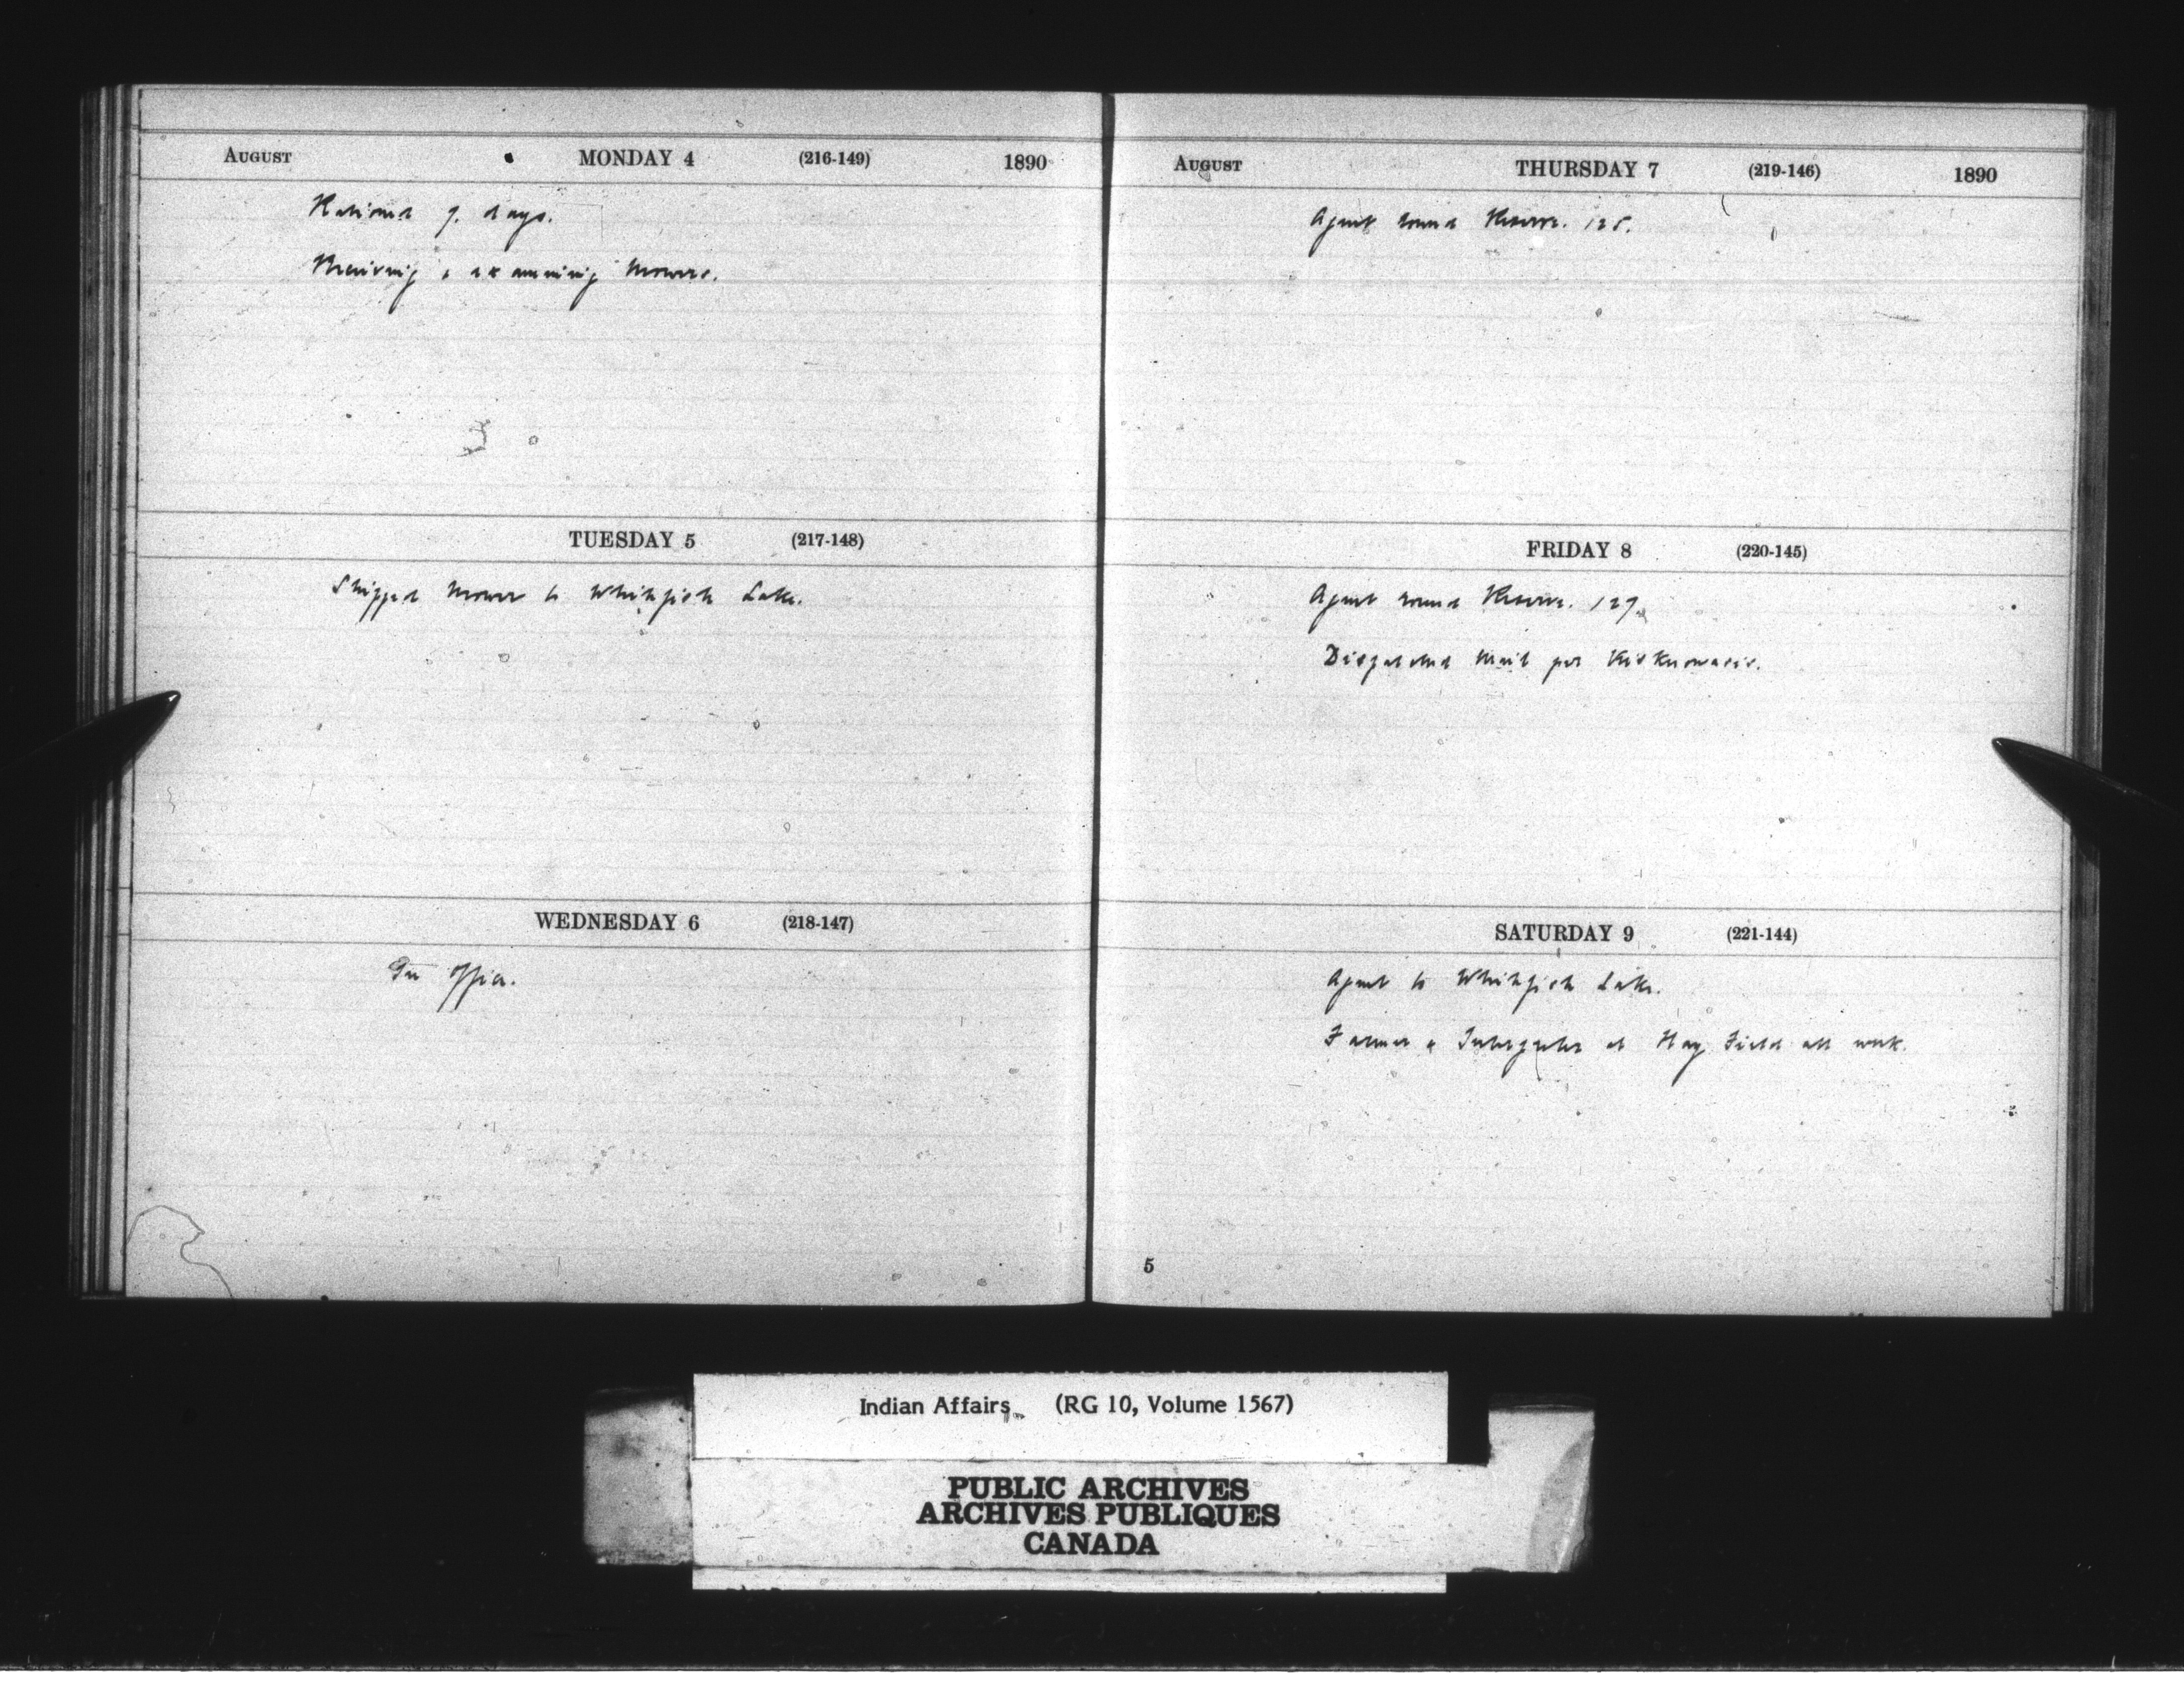 AUGUST MONDAY 4 (216-149) 1890
Rationed 7. days.
Receiving & examining Mowers.
TUESDAY 5 (217-148)
Shipped Mower to Whitefish Lake.
WEDNESDAY 6 (218-147)
In Office.
AUGUST THURSDAY 7 (219-146) 1890
Agent round Reserve. 125.
FRIDAY 8 (220-145)
Agent round Reserve. 127.
Dispatched Mail per
SATURDAY 9 (221-144)
Agent to Whitefish Lake.
Farmer & Interpreter at Hay Field all week.
5
Indian Affairs (RG 10, Volume 1567)
PUBLIC ARCHIVES
ARCHIVES PUBLIQUES
CANADA